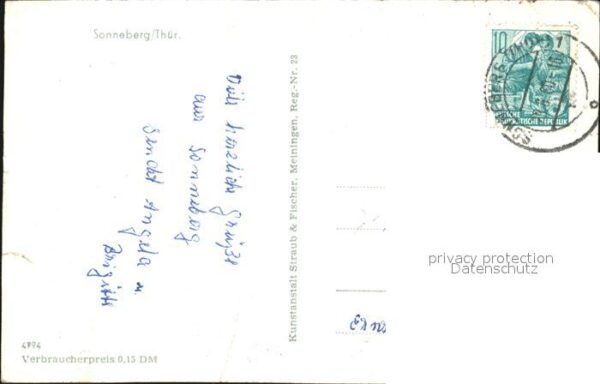 Sonneberg/Thür.
Viele herzliche Grüße
aus Sonneberg
sendet Angela u.
Brigitte
Kunstanstalt Straub & Fischer, Meiningen, Reg.-Nr. 23
10
DEUTSCHE
DEMOKRATISCHE REPUBLIK
SONNEBERG (THÜR) 1
privacy protection
Datenschutz
4794
Verbraucherpreis 0,15 DM